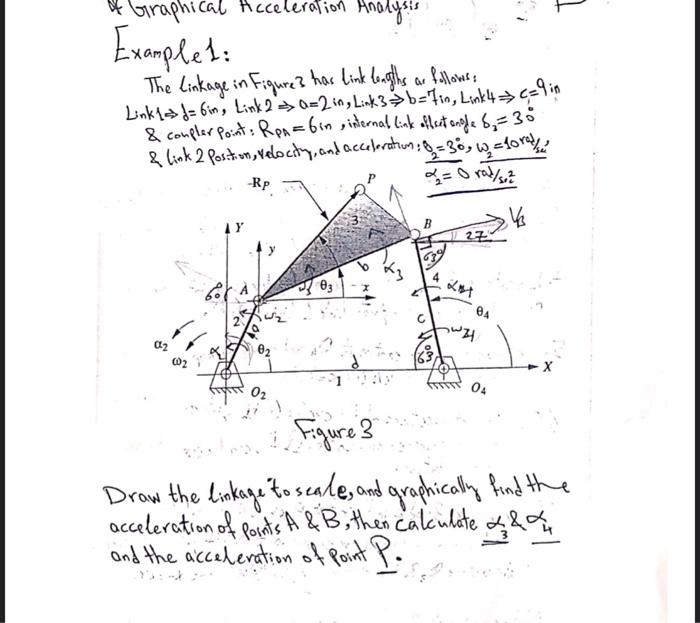 * Graphical Acceleration Analysis
Example 1:
The Linkage in Figure 3 has link lengths as follows:
Link 1 ⇒ d = 6in, Link 2 ⇒ a = 2in, Link 3 ⇒ b = 7in, Link 4 ⇒ c = 9in
& coupler point: R_PA = 6in, internal link offset angle δ₃ = 30°
& link 2 Position, velocity, and acceleration: θ₂ = 30°, ω₂ = 10 rad/sec
α₂ = 0 rad/sec²
Rp
P
3
B
V_B
Y
y
27
63°
A
b
α₃
4
60°
A
θ₃
x
α₄
ω₂
θ₄
2
a
c
α₂
ω₂
θ₂
ω₄
63°
d
1
X
O₂
O₄
Figure 3
Draw the linkage to scale, and graphically find the
acceleration of points A & B, then calculate α₃ & α₄
and the acceleration of Point P.